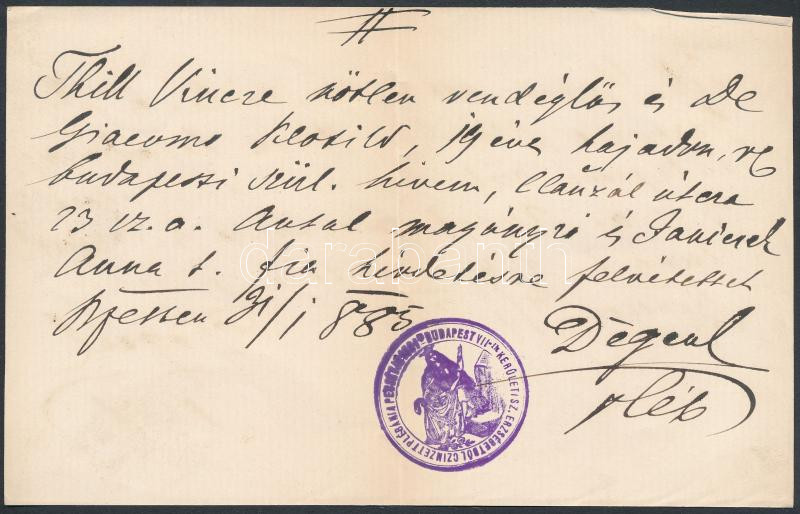 Thill Vincze nőtlen vendéglős és De
Giacomo Klotild, 19 éves hajadon, rk
budapesti szül. hívem, Clauzál utcza
23 sz. a. Antal magányzó és
Anna t. fia hirdetésre felvétetett
Bpesten 31/I 885
Dégen
BUDAPEST VII-IK KERÜLETI SZ. ERZSÉBETRŐL CZIMZETT PLÉBÁNIA
darabanth